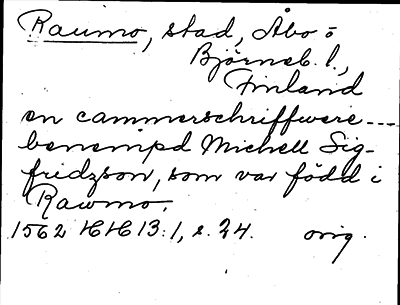 Raumo, stad, Åbo o
Björneb. l.,
Finland
en cammerschriffwere ---
benempd Michell Sig-
fridzson, som var född i
Rawmo.
1562 HH 13:1, s. 24. orig.